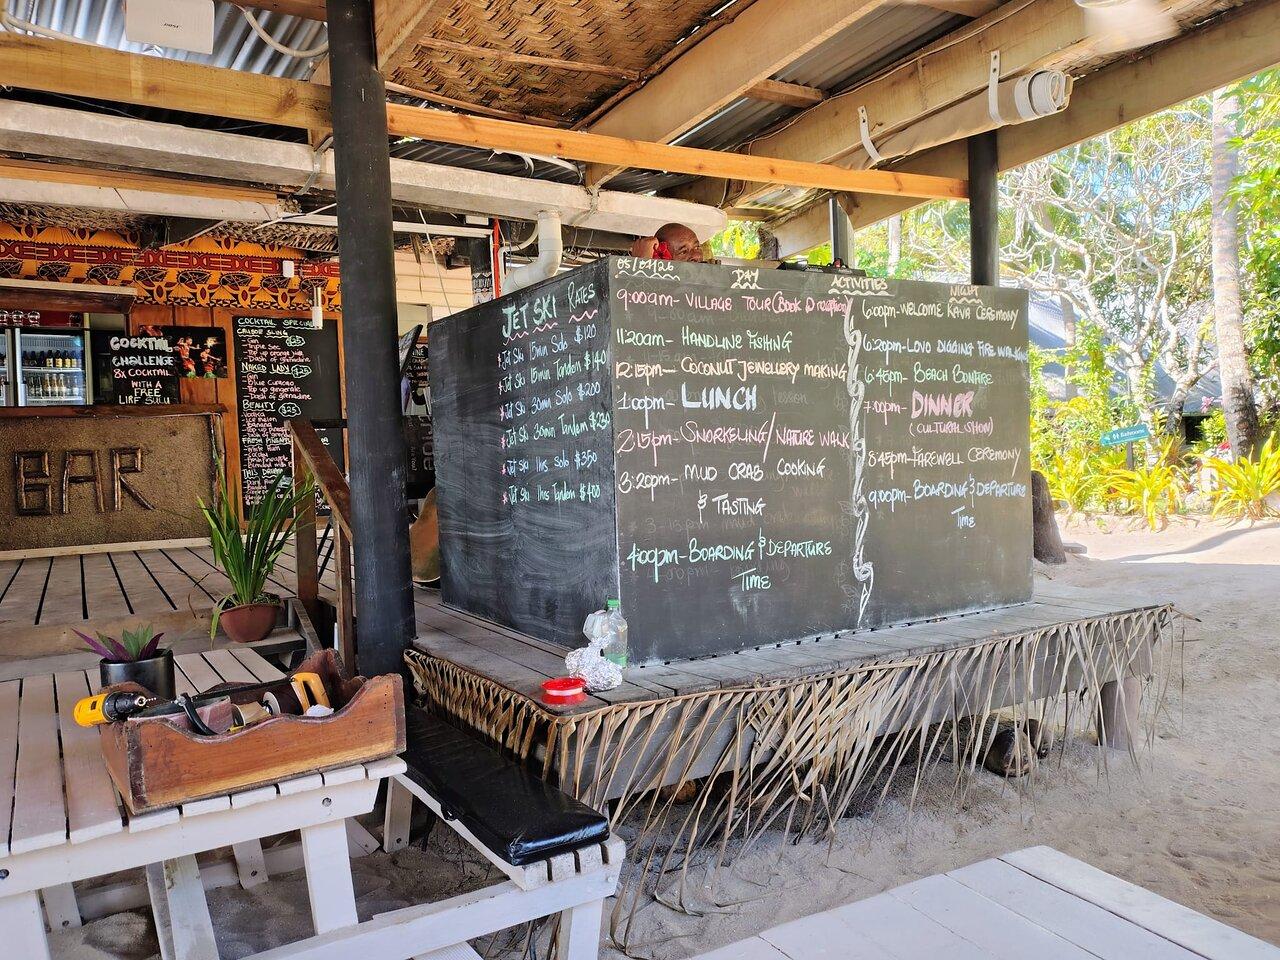 BAR
COCKTAIL
CHALLENGE
8X COCKTAIL
WITH A
FREE
COCKTAIL SPECIAL
$25
- Gin
- Triple Sec
NAKED LADY $25
- Gin
- Blue Curacao
BEAUTY $25
- Banana
JET SKI RATES
Jet Ski 15min Solo $120
Jet Ski 15min Tandem $140
Jet Ski 30min Solo $200
Jet Ski 30min Tandem $230
Jet Ski 1hrs Solo $350
Jet Ski 1hrs Tandem $400
DAY ACTIVITIES NIGHT
9:00am- VILLAGE TOUR (Book @ reception)
11:20am- HANDLINE FISHNG
12:15pm- COCONUT JEWELLERY MAKING
1:00pm- LUNCH
2:15pm- SNORKELING/NATURE WALK
3:20pm- MUD CRAB COOKING
& TASTING
4:00pm- BOARDING & DEPARTURE
TIME
6:00pm- WELCOME KAVA CEREMONY
6:20pm- LOVO DIGGING FIRE WALKING
6:45pm- BEACH BONFIRE
7:00pm- DINNER
(CULTURAL SHOW)
8:45pm- FAREWELL CEREMONY
9:00pm- BOARDING & DEPARTURE
TIME